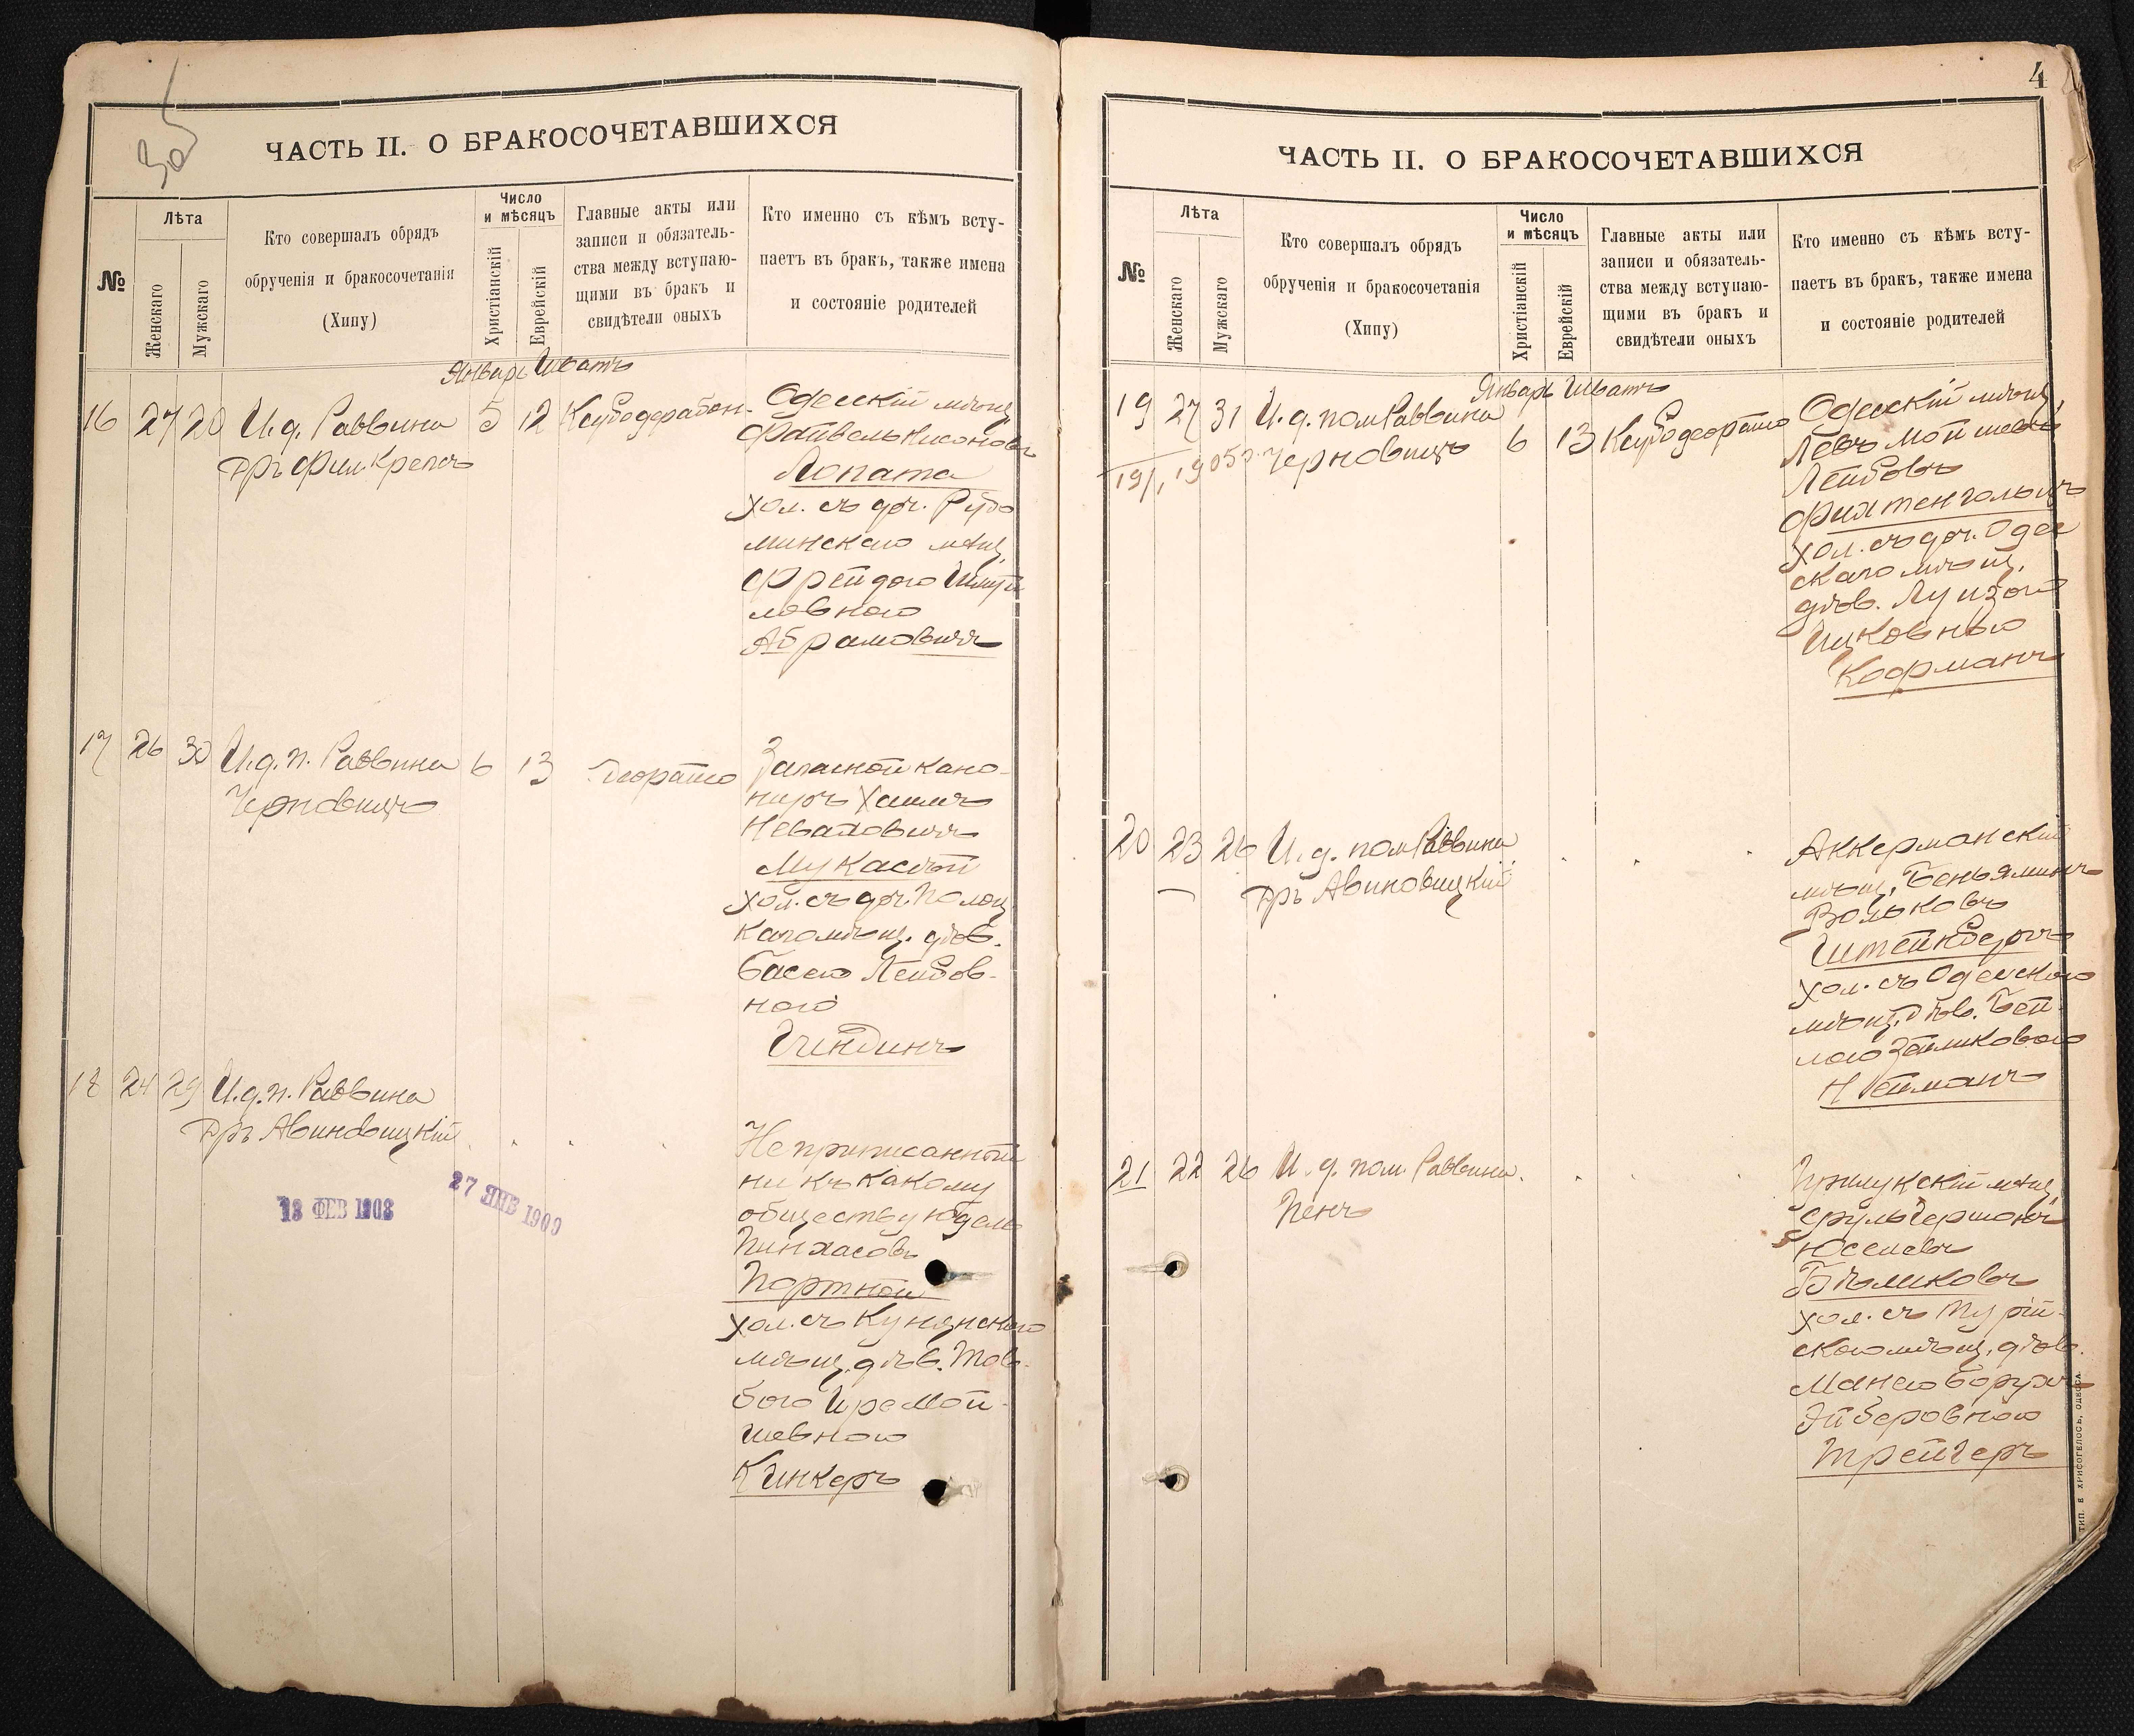 ЧАСТЬ II. О БРАКОСОЧЕТАВШИХСЯ
№
Лѣта
Женскаго
Мужскаго
Кто совершалъ обрядъ
обрученія и бракосочетанія
(Хипу)
Число
и мѣсяцъ
Христіанскій
Еврейскій
Главные акты или
записи и обязатель-
ства между вступаю-
щими въ бракъ и
свидѣтели оныхъ
Кто именно съ кѣмъ всту-
паетъ въ бракъ, также имена
и состояніе родителей
Январь Шватъ
16 27 20 И.д. Раввина 5 12
Одесскій мѣщ.
Файвель Нисоновъ
Лопата
хол. съ доч.
минскаго мѣщ.
Фрейдою Шмуй
левною
Абрамовичъ
17 26 30 И.д.п. Раввина 6 13
Черновицъ
Запасной кано-
ниръ Хаимъ
Мукасѣй
хол. съ доч. Полоц
каго мѣщ. дѣв.
Басею Лейбов-
ною
Гиндинъ
18 24 29 И.д.п. Раввина
Дръ Авиновицкій
Неприписанный
ни къ какому
обществу Юдель
Пинхасовъ
Портной
хол. съ Купянскою
мѣщ. дѣв. Тов-
бою Мой-
шевною
Кинкеръ
13 ФЕВ 1908
27 ЯНВ 1909
4
ЧАСТЬ II. О БРАКОСОЧЕТАВШИХСЯ
№
Лѣта
Женскаго
Мужскаго
Кто совершалъ обрядъ
обрученія и бракосочетанія
(Хипу)
Число
и мѣсяцъ
Христіанскій
Еврейскій
Главные акты или
записи и обязатель-
ства между вступаю-
щими въ бракъ и
свидѣтели оныхъ
Кто именно съ кѣмъ всту-
паетъ въ бракъ, также имена
и состояніе родителей
Январь Шватъ
19 27 31 И.д. пом Раввина
Черновицъ 6 13
Одесскій мѣщ.
Лейбовъ
Фихтенгольцъ
хол. съ доч. Одес
скаго мѣщ.
дѣв. Луизою
Ицковною
Кофманъ
20 23 26 И.д. пом Раввина
Дръ Авиновицкій
Аккерманскій
мѣщ. Беньяминъ
Вольковъ
Штейнбергъ
хол. съ Одесскою
мѣщ. дѣв. Бей-
лою Зейликовою
Нейманъ
21 22 26 И.д. пом. Раввина
Пенъ
Прилукскій мѣщ.
Сруль Гершонъ
Юселевъ
Бѣликовъ
скою мѣщ. дѣв.
Манею Борухъ
Трейгеръ
ТИП. Е. ХРИСОГЕЛОСЪ, ОДЕССА.